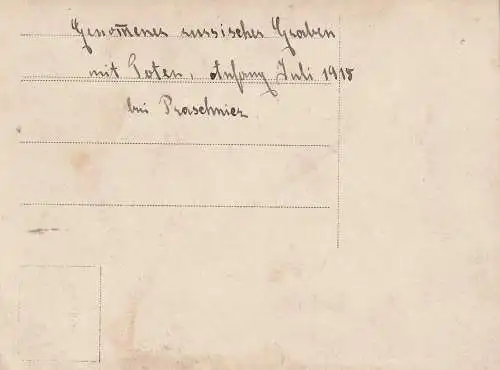 Genom̅enes russischer Graben
mit Toten, Anfang Juli 1915
bei Praschniez